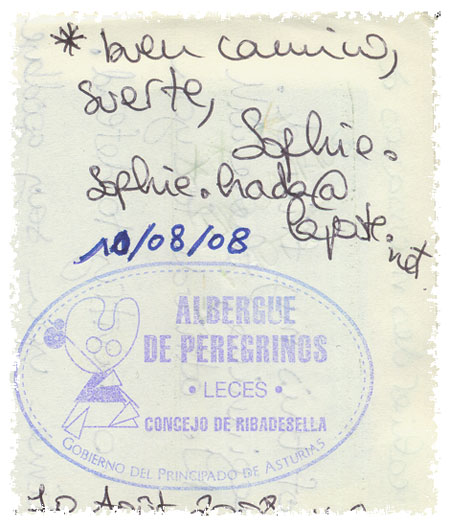 * buen camino,
suerte,
Sophie.
sophie.hada@
laposte.net
10/08/08
ALBERGUE
DE PEREGRINOS
• LECES •
CONCEJO DE RIBADESELLA
GOBIERNO DEL PRINCIPADO DE ASTURIAS
10 Août 2008